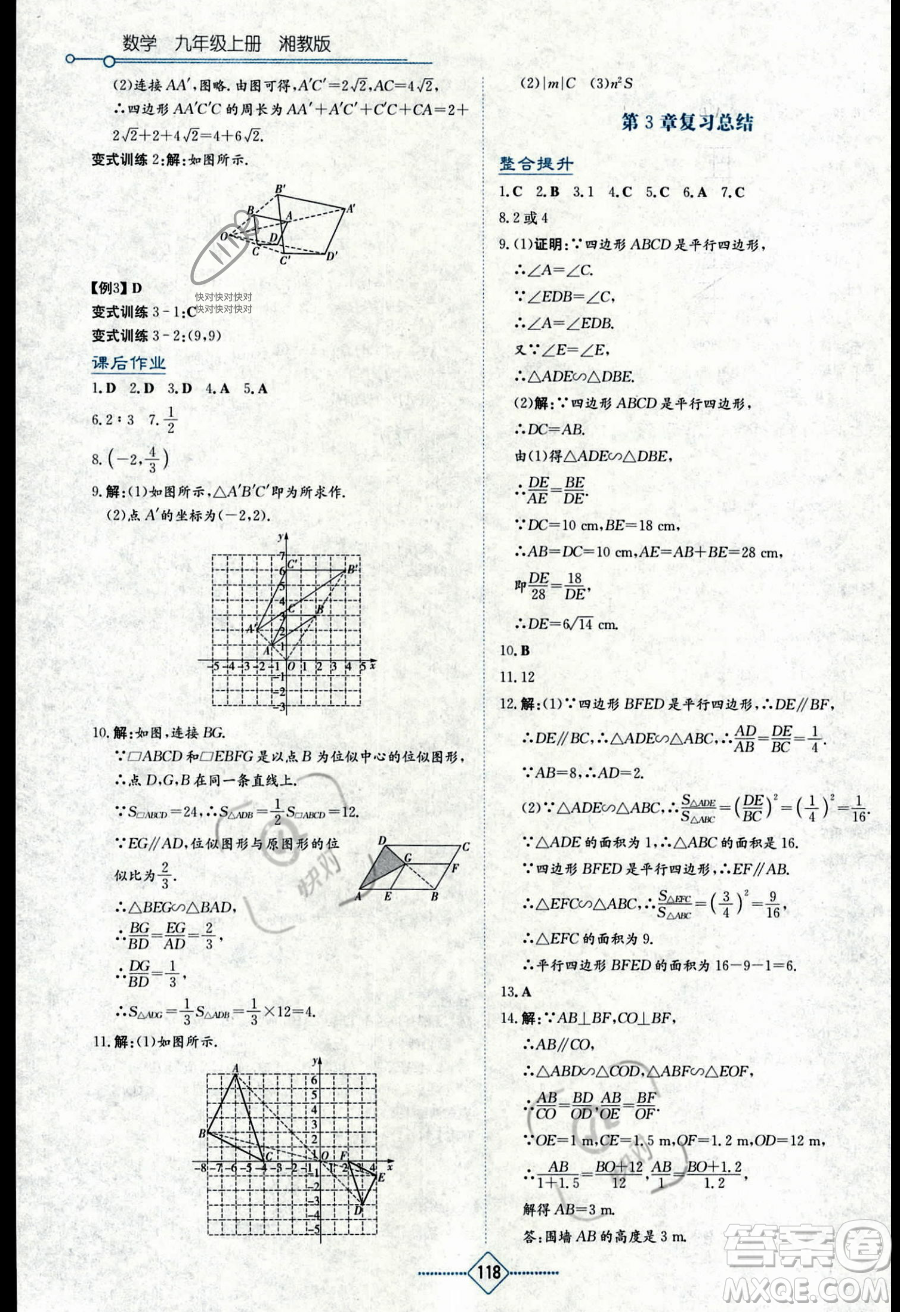 数学 九年级上册 湘教版
(2)连接 AA′,图略.由图可得,A′C′=2√2,AC=4√2,
∴四边形 AA′C′C 的周长为 AA′+A′C′+C′C+CA=2+
2√2+2+4√2=4+6√2.
变式训练 2:解:如图所示.
B′
A′
B
A
O
C
D
C′
D′
快对快对快对
快对快对快对
【例3】D
变式训练 3-1:C
变式训练 3-2:(9,9)
课后作业
1.D 2.D 3.D 4.A 5.A
6.2∶3 7.1/2
8.(-2,4/3)
9.解:(1)如图所示,△A′B′C′即为所求作.
(2)点 A′的坐标为(-2,2).
y
7
C′
6
B′
5
4
3
C
B
A′
2
A
1
-5 -4 -3 -2 -1 O 1 2 3 4 5 x
-1
-2
-3
10.解:如图,连接 BG.
∵□ABCD 和□EBFG 是以点 B 为位似中心的位似图形,
∴点 D,G,B 在同一条直线上.
∵S□ABCD=24,∴S△ABD=1/2 S□ABCD=12.
∵EG∥AD,位似图形与原图形的位
似比为 2/3,
D C
G F
A E B
∴△BEG∽△BAD,
∴BG/BD=EG/AD=2/3,
∴DG/BD=1/3,
∴S△ADG=1/3 S△ABD=1/3×12=4.
11.解:(1)如图所示.
y
A
6
5
4
3
2
1
B
C
-8 -7 -6 -5 -4 -3 -2 -1 O 1 2 F 3 4 x
E
D
-1
-2
-3
-4
-5
(2)|m|C (3)n²S
第 3 章复习总结
整合提升
1.C 2.B 3.1 4.C 5.C 6.A 7.C
8.2 或 4
9.(1)证明:∵四边形 ABCD 是平行四边形,
∴∠A=∠C.
∵∠EDB=∠C,
∴∠A=∠EDB.
又∵∠E=∠E,
∴△ADE∽△DBE.
(2)解:∵四边形 ABCD 是平行四边形,
∴DC=AB.
由(1)得△ADE∽△DBE,
∴DE/AE=BE/DE.
∵DC=10 cm,BE=18 cm,
∴AB=DC=10 cm,AE=AB+BE=28 cm,
即DE/28=18/DE,
∴DE=6√14 cm.
10.B
11.12
12.解:(1)∵四边形 BFED 是平行四边形,∴DE∥BF,
∴DE∥BC,∴△ADE∽△ABC,∴AD/AB=DE/BC=1/4.
∵AB=8,∴AD=2.
(2)∵△ADE∽△ABC,∴S△ADE/S△ABC=(DE/BC)²=(1/4)²=1/16.
∵△ADE 的面积为 1,∴△ABC 的面积是 16.
∵四边形 BFED 是平行四边形,∴EF∥AB,
∴△EFC∽△ABC,∴S△EFC/S△ABC=(3/4)²=9/16,
∴△EFC 的面积为 9.
∴平行四边形 BFED 的面积=16-9-1=6.
13.A
14.解:∵AB⊥BF,CO⊥BF,
∴AB∥CO.
∴△ABD∽△COD,△ABF∽△EOF.
∴AB/CO=BD/OD,AB/OE=BF/OF.
∵OE=1 m,CE=1.5 m,OF=12 m,OD=12 m,
∴AB/1+1.5=BO+12/12,AB/1=BO+12/12,
解得 AB=3 m.
答:围墙 AB 的高度是 3 m.
118
快对
快对
答案圈
MXQE.COM